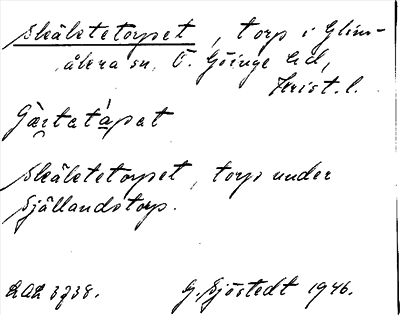 Skältetorpet, torp i Glim-
åkra sn, Ö. Göinge hd,
Krist. l.
Skältetorpet, torp under
Sjöllandstorp.
LAL 3738.
G. Sjöstedt 1946.